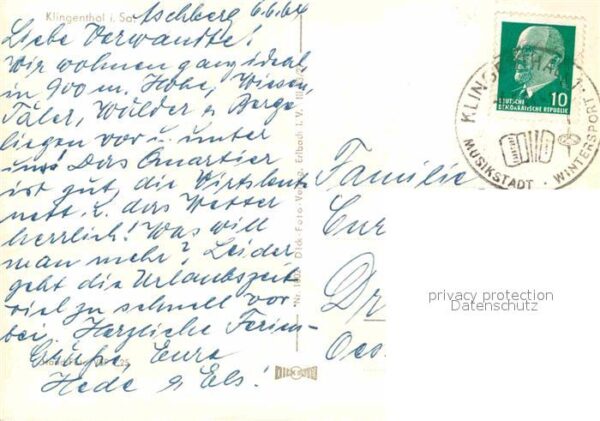 Klingenthal i. Sa.
Aschberg 6.6.64
Liebe Verwandte!
Wir wohnen ganz ideal
in 900 m. Höhe, Wiesen,
Täler, Wälder u Berge
liegen vor u. unter
uns! Das Quartier
ist gut, die Wirtsleute
nett u. das Wetter
herrlich! Was will
man mehr? Leider
geht die Urlaubszeit
viel zu schnell vor-
bei. Herzliche Ferien-
Grüße Eure
Hede u Els!
Dick-Foto-Verlag, Erlbach i. V.
DICK FOTO
Familie
Eur
Dr
DEUTSCHE
DEMOKRATISCHE REPUBLIK
10
MUSIKSTADT · WINTERSPORT
privacy protection
Datenschutz